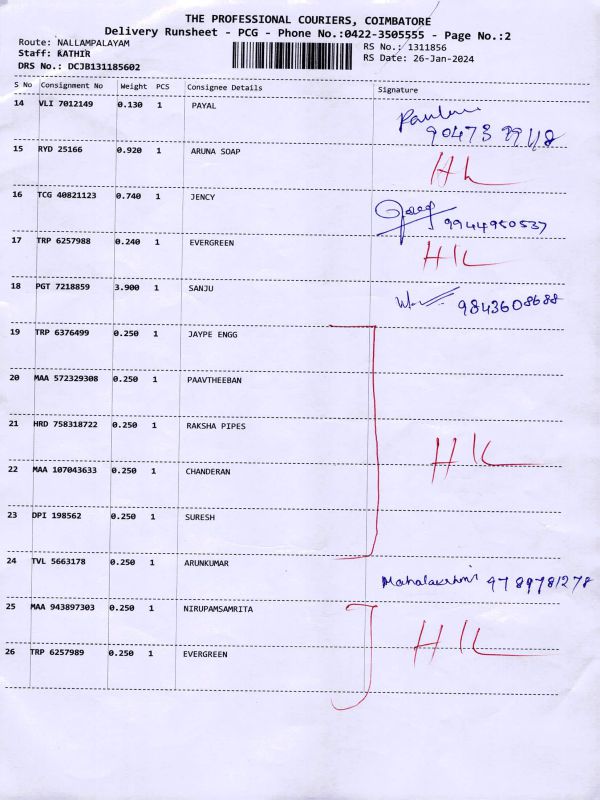 THE PROFESSIONAL COURIERS, COIMBATORE
Delivery Runsheet - PCG - Phone No.:0422-3505555 - Page No.:2
Route: NALLAMPALAYAM
Staff: KATHIR
DRS No.: DCJB131185602
RS No.: 1311856
RS Date: 26-Jan-2024
S No Consignment No Weight PCS Consignee Details Signature
14 VLI 7012149 0.130 1 PAYAL
15 RYD 25166 0.920 1 ARUNA SOAP
16 TCG 40821123 0.740 1 JENCY 9944950537
17 TRP 6257988 0.240 1 EVERGREEN HK
18 PGT 7218859 3.900 1 SANJU 9843608688
19 TRP 6376499 0.250 1 JAYPE ENGG
20 MAA 572329308 0.250 1 PAAVTHEEBAN
21 HRD 758318722 0.250 1 RAKSHA PIPES HK
22 MAA 107043633 0.250 1 CHANDERAN
23 DPI 198562 0.250 1 SURESH
24 TVL 5663178 0.250 1 ARUNKUMAR Mahalakshmi 9789781278
25 MAA 943897303 0.250 1 NIRUPAMSAMRITA HK
26 TRP 6257989 0.250 1 EVERGREEN